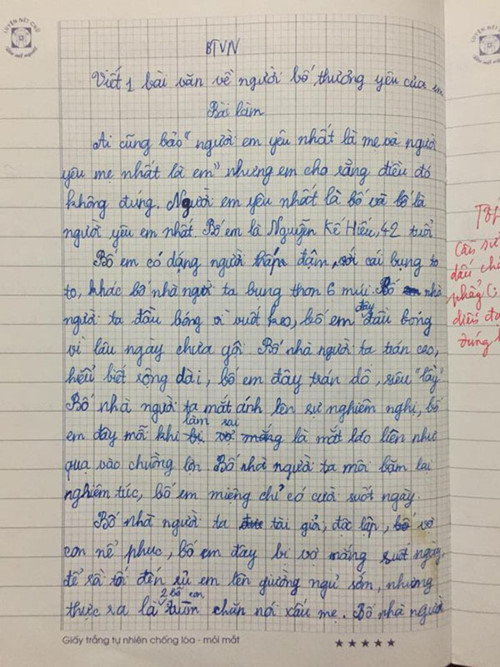 BTVN
Viết 1 bài văn về người bố thương yêu của em
Bài làm
Ai cũng bảo "người em yêu nhất là mẹ và người
yêu mẹ nhất là em" nhưng em cho rằng điều đó
không đúng. Người em yêu nhất là bố và bố là
người yêu em nhất. Bố em là Nguyễn Kế Hiếu, 42 tuổi
Bố em có dáng người đậm, với cái bụng to
to, khác bố nhà người ta bụng thon 6 múi. Bố nhà
người ta đầu bóng vì vuốt keo, bố em đây đầu bóng
vì lâu ngày chưa gội. Bố nhà người ta trán cao,
hiểu biết rộng dài, bố em đây trán dô, siêu "lầy"
Bố nhà người ta mắt ánh lên sự nghiêm nghị, bố
em đây mỗi khi làm sai là mắt láo liên như
quạ vào chuồng lợn. Bố nhà người ta môi bặm lại
nghiêm túc, bố em miệng chỉ có cười suốt ngày.
Bố nhà người ta tài giỏi, độc lập, vợ
con nể phục, bố em đây bị vợ mắng suốt ngày
để rồi tối đến rủ em lên giường ngủ sớm, nhưng
thực ra là 2 bố con chăn nói xấu mẹ. Bố nhà người
Giấy trắng tự nhiên chống lóa - mỏi mắt
LUYỆN NÉT CHỮ
Câu
dấu
điều
đúng